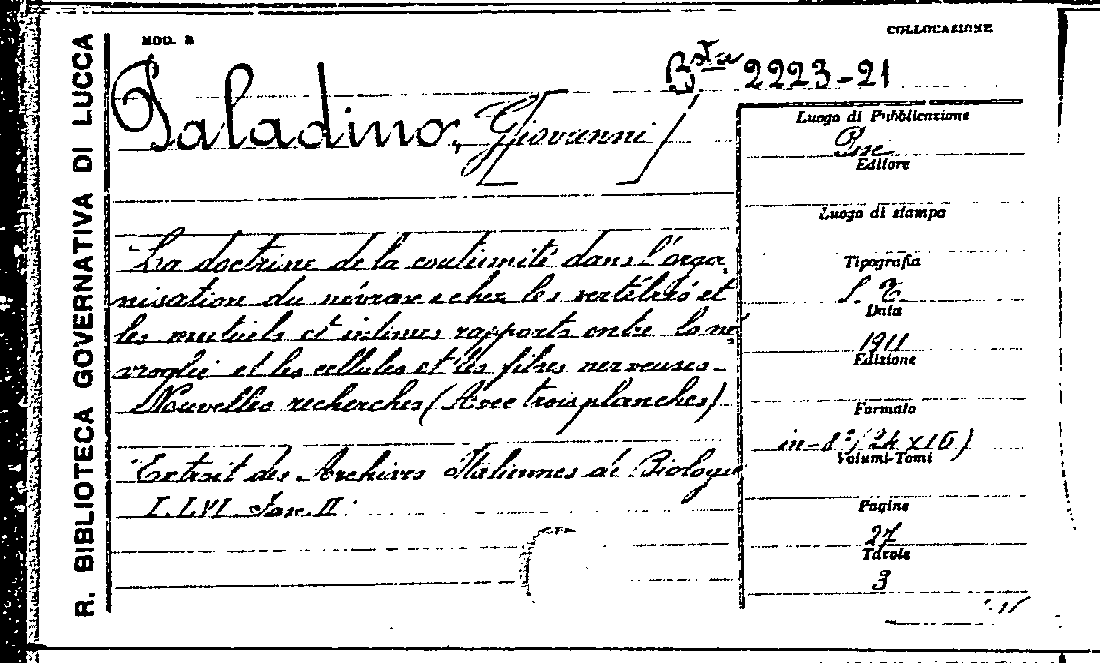 R. BIBLIOTECA GOVERNATIVA DI LUCCA
MOD. R
COLLOCAZIONE
Bsta 2223-21
Paladino, [Giovanni]
La doctrine de la continuité dans l'orga-
nisation du névraxe chez les vertébrés et
les mutuels et intimes rapports entre la né-
vroglie et les cellules et les fibres nerveuses.
Nouvelles recherches (Avec trois planches)
Extrait des Archives Italiennes de Biologie
T. LVI Fasc. II
Luogo di Pubblicazione
Pise
Editore
Luogo di stampa
Tipografia
S. T.
Data
1911
Edizione
Formato
in-8° (24 x 16)
Volumi-Tomi
Pagine
27
Tavole
3